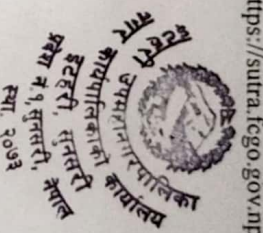 ttps://sutra.fcgo.gov.np
इटहरी उपमहानगरपालिका
नगर कार्यपालिकाको कार्यालय
इटहरी, सुनसरी
प्रदेश नं. १, सुनसरी, नेपाल
स्था. २०७३